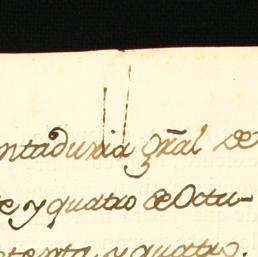 ntaduria gral de
e y quatro de Octu-
etenta y quatro.